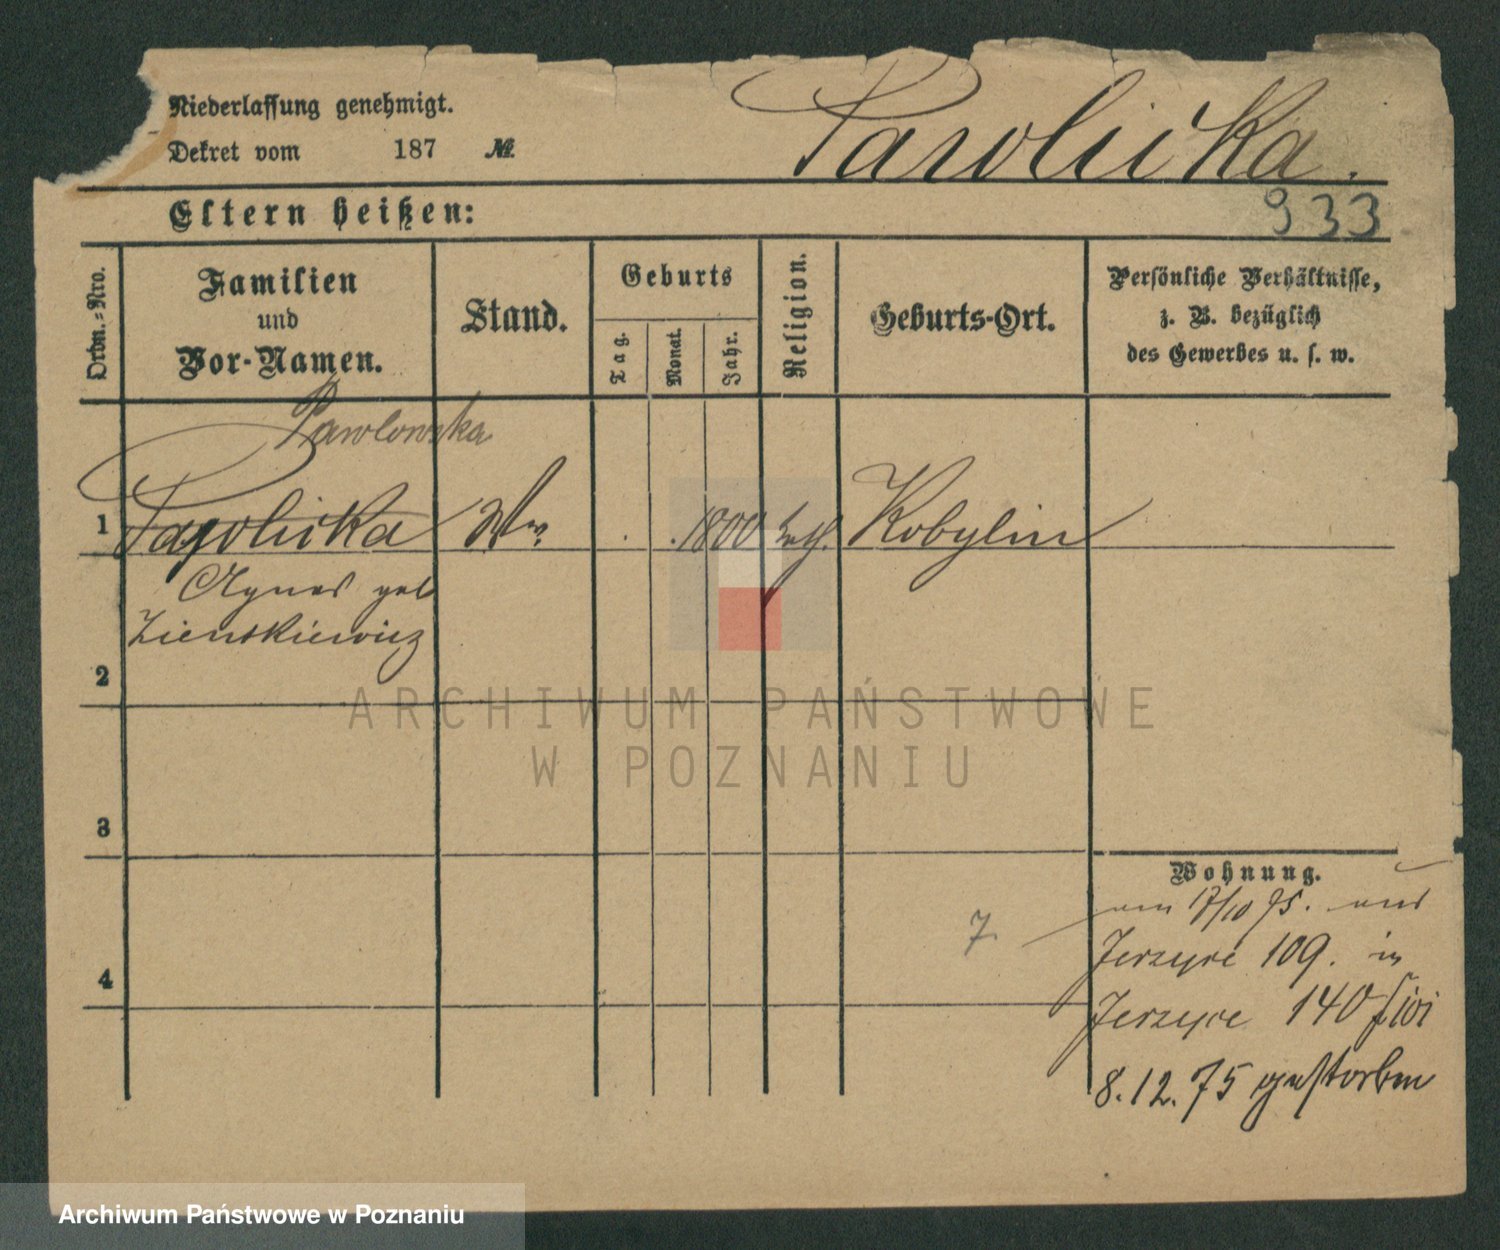 Niederlassung genehmigt.
Dekret vom 187 №
Pawlicka.
Eltern heißen:
933
Ordn.=Nro.
Familien
und
Vor-Namen.
Stand.
Geburts
Tag.
Monat.
Jahr.
Religion.
Geburts-Ort.
Persönliche Verhältnisse,
z. B. bezüglich
des Gewerbes u. s. w.
Pawlowska
1 1800 kath. Kobylin
Agnes geb
Zienskiewicz
2
3
Wohnung.
am 17/10 75. aus
7
Jerzyce 109. in
4
Jerzyce 140
8.12.75 gestorben
ARCHIWUM PAŃSTWOWE
W POZNANIU
Archiwum Państwowe w Poznaniu